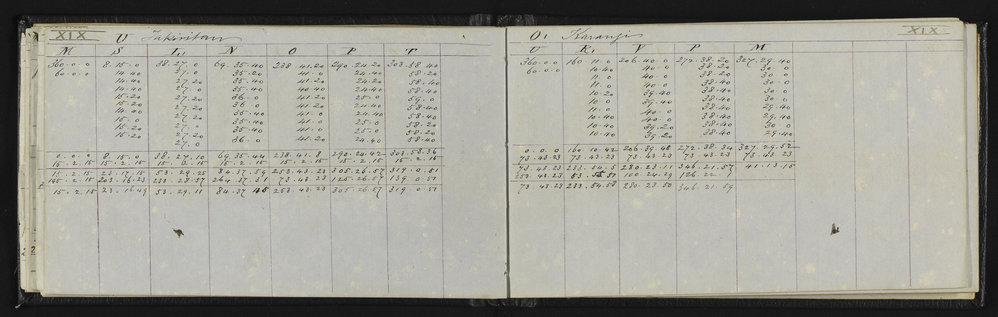 XIX U
M S T N O P T
360.0.0 8.15.0 38.27.0 69.35.40 238.41.20 290.24.20 303.58.40
60.0.0 14.40 27.0 35.20 41.0 24.40 58.20
14.40 27.20 35.40 41.20 24.40
14.40 27.0 35.40 40.40 25.0 58.40
15.20 27.20 36.0 41.20 24.40 59.0
15.20 27.20 36.0 41.20 24.40 58.40
14.40 27.0 35.40 41.0 24.40 58.40
15.0 27.20 35.40 41.0 25.0 58.40
15.20 27.0 35.40 41.0 25.0 58.20
15.20 27.20 35.40 41.0 25.0 58.20
27.0 36.0 41.20 24.40 58.40
0.0.0 8.15.0 38.27.10 69.35.44 238.41.8 290.24.42 303.58.36
15.2.15 15.2.15 15.2.15 15.2.15 15.2.15 15.2.15 15.2.15
15.2.15 23.17.15 53.29.25 84.37.59 253.43.23 305.26.57 319.0.51
195.2.15 203.16.23 233.28.57 264.37.37 73.43.23 125.26.57 139.0.51
15.2.15 23.16.49 53.29.11 84.37.48 253.43.23 305.26.57 319.0.51
O Karangi XIX
U R V P M
360.0.0 160.11.0 206.40.0 272.38.20 327.29.40
60.0.0 10.40 40.0 38.40 30.0
11.0 40.0 38.20 30.0
11.0 40.0 38.20 30.0
11.0 40.0 38.40 30.0
10.20 39.40 38.40 30.0
10.40 39.40 38.40 30.0
10.40 40.0 38.40 29.40
11.0 40.0 38.40 29.40
10.40 39.20 38.40 30.0
10.40 39.20 38.40 29.40
0.0.0 160.10.42 206.39.48 272.38.34 327.29.52
73.43.23 73.43.23 73.43.23 73.43.23 73.43.23
73.43.23 233.54.5 280.23.11 346.21.57 41.13.15
253.43.23 100.24.29 126.22
73.43.23 233.54.58 280.23.50 346.21.59